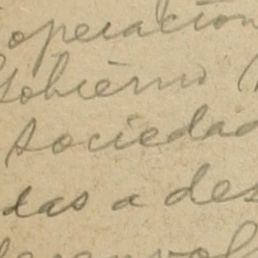 operación
Gobierno (
Sociedad
das a des